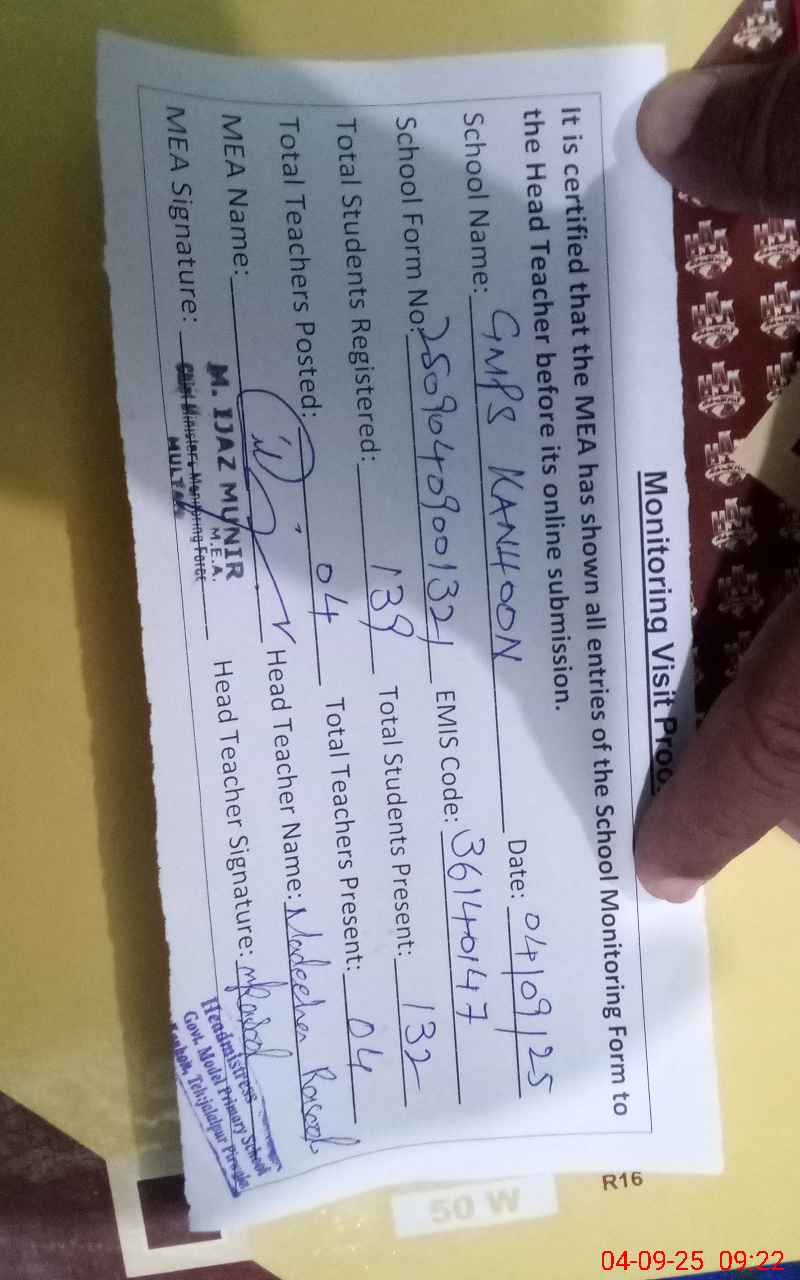 Monitoring Visit Proo
It is certified that the MEA has shown all entries of the School Monitoring Form to
the Head Teacher before its online submission.
School Name: GMPS KANHOON Date: 04/09/25
School Form No: 2509040900132 EMIS Code: 36140147
Total Students Registered: 139 Total Students Present: 132
Total Teachers Posted: 04 Total Teachers Present: 04
MEA Name: Head Teacher Name: Madeeha Rasool
MEA Signature: Head Teacher Signature: mRasool
M. IJAZ MUNIR
M.E.A.
Chief Minister's Monitoring Force
MULTAN
Headmistress
Govt. Model Primary School
Teh: Jalalpur Pirwala
R16
50 W
04-09-25 09:22